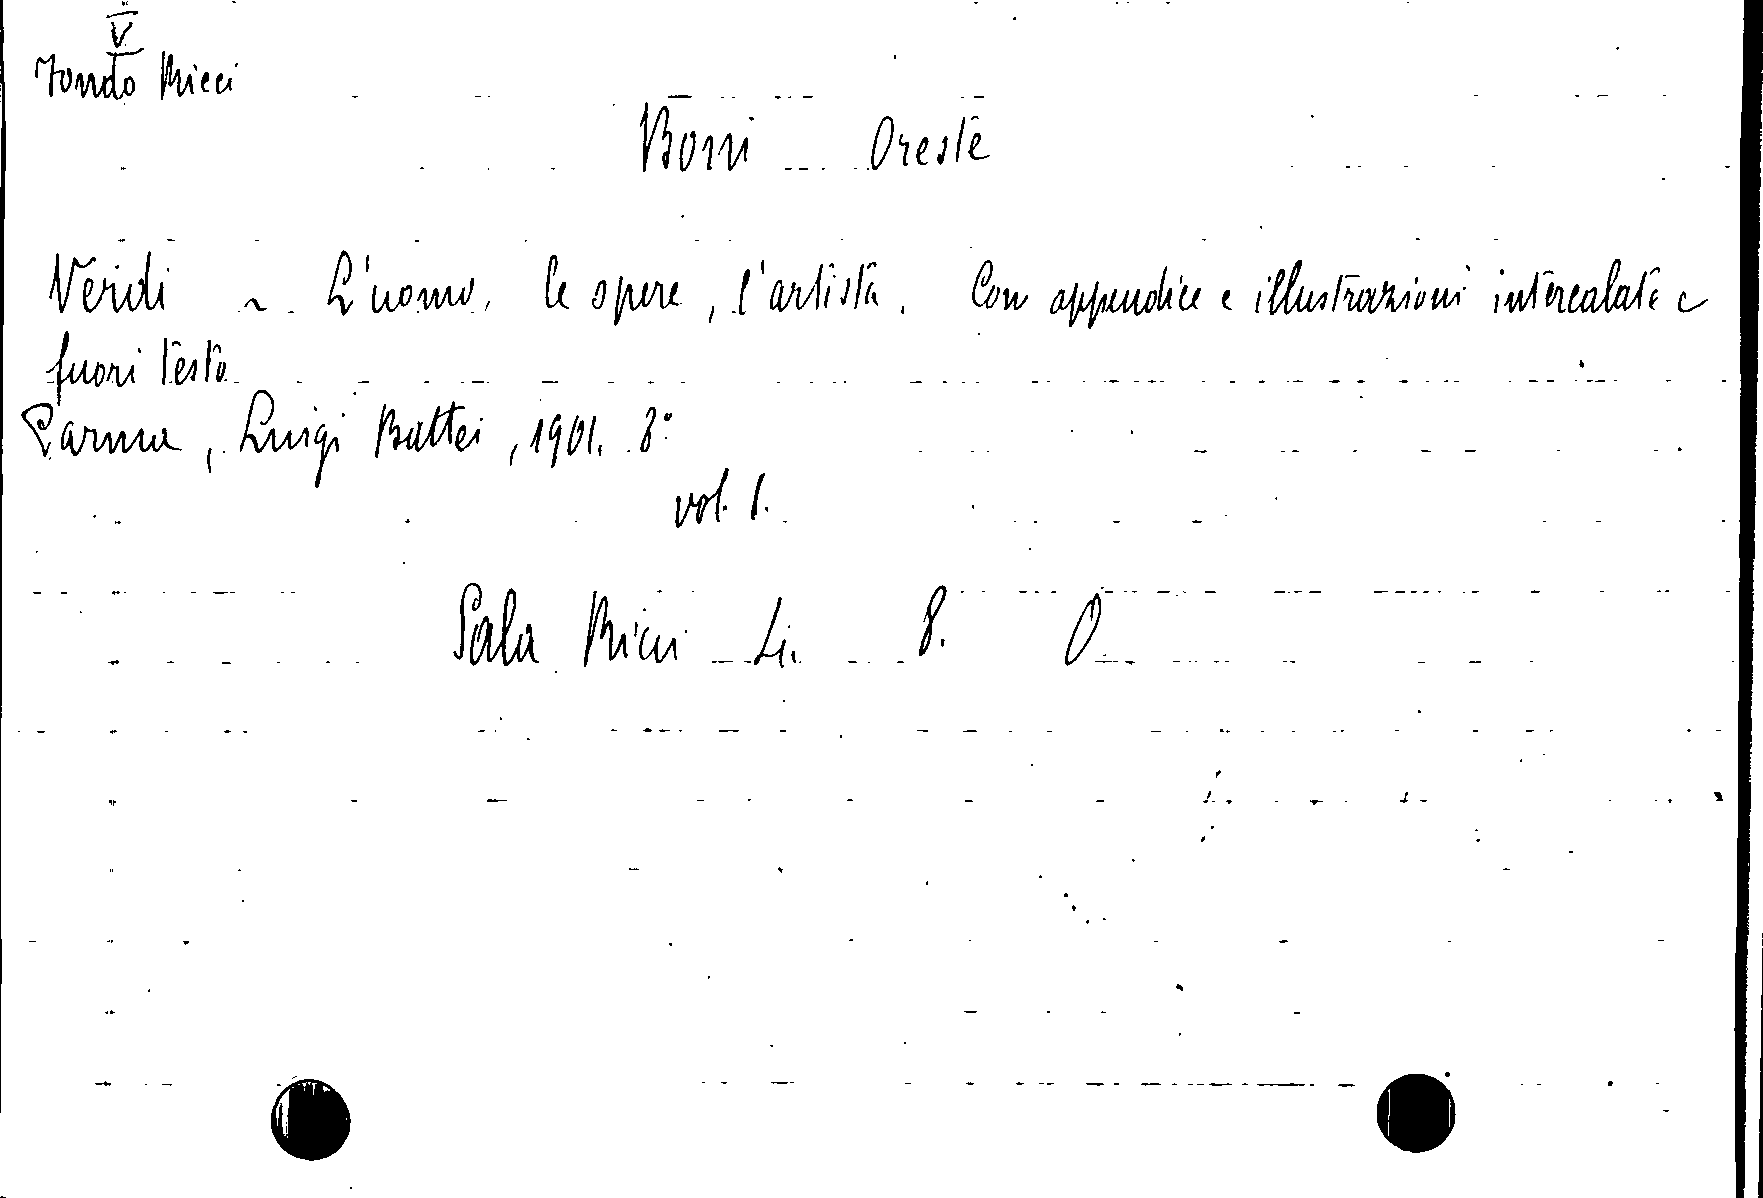 V
Fondo Ricci
Boni Oreste
Verdi ~ L'uomo, le opere, l'artista. Con appendice e illustrazioni intercalate e
fuori testo
Parma, Luigi Battei, 1901. 8°
vol. 1.
Sala Ricci Li. 8. O